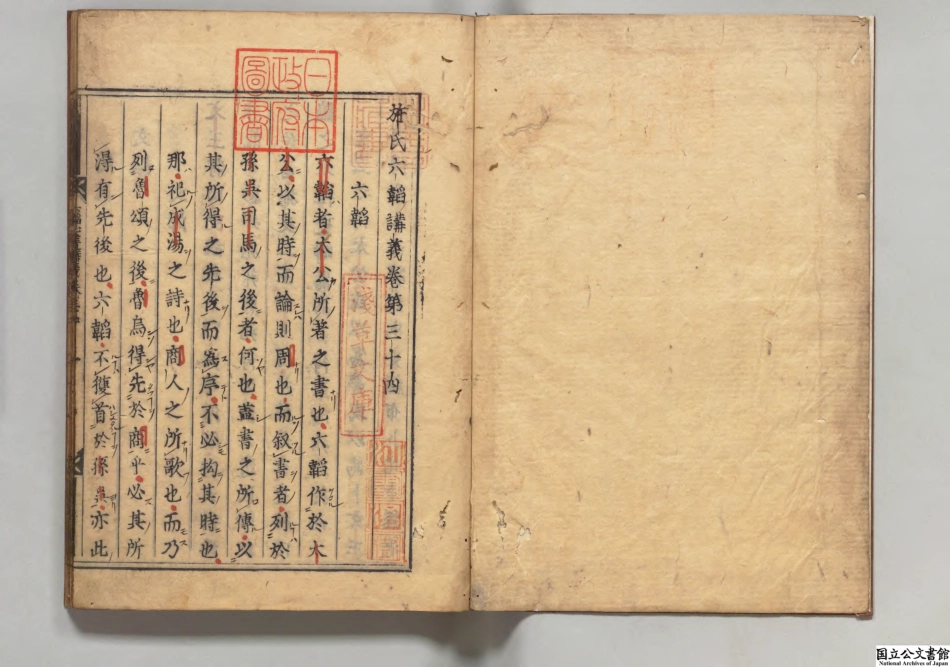 施氏六韜講義卷第三十四
六韜
六韜者太公所著之書也六韜作於太
公以其時而論則周也而叙書者列於
孫吳司馬之後者何也蓋書之所傳以
其所得之先後而爲序不必拘其時也
那祀成湯之詩也商人之所歌也而乃
列魯頌之後魯烏得先於商乎必其所
得有先後也六韜不獲首於孫吳亦此
日本
政府
圖書
国立公文書館
National Archives of Japan